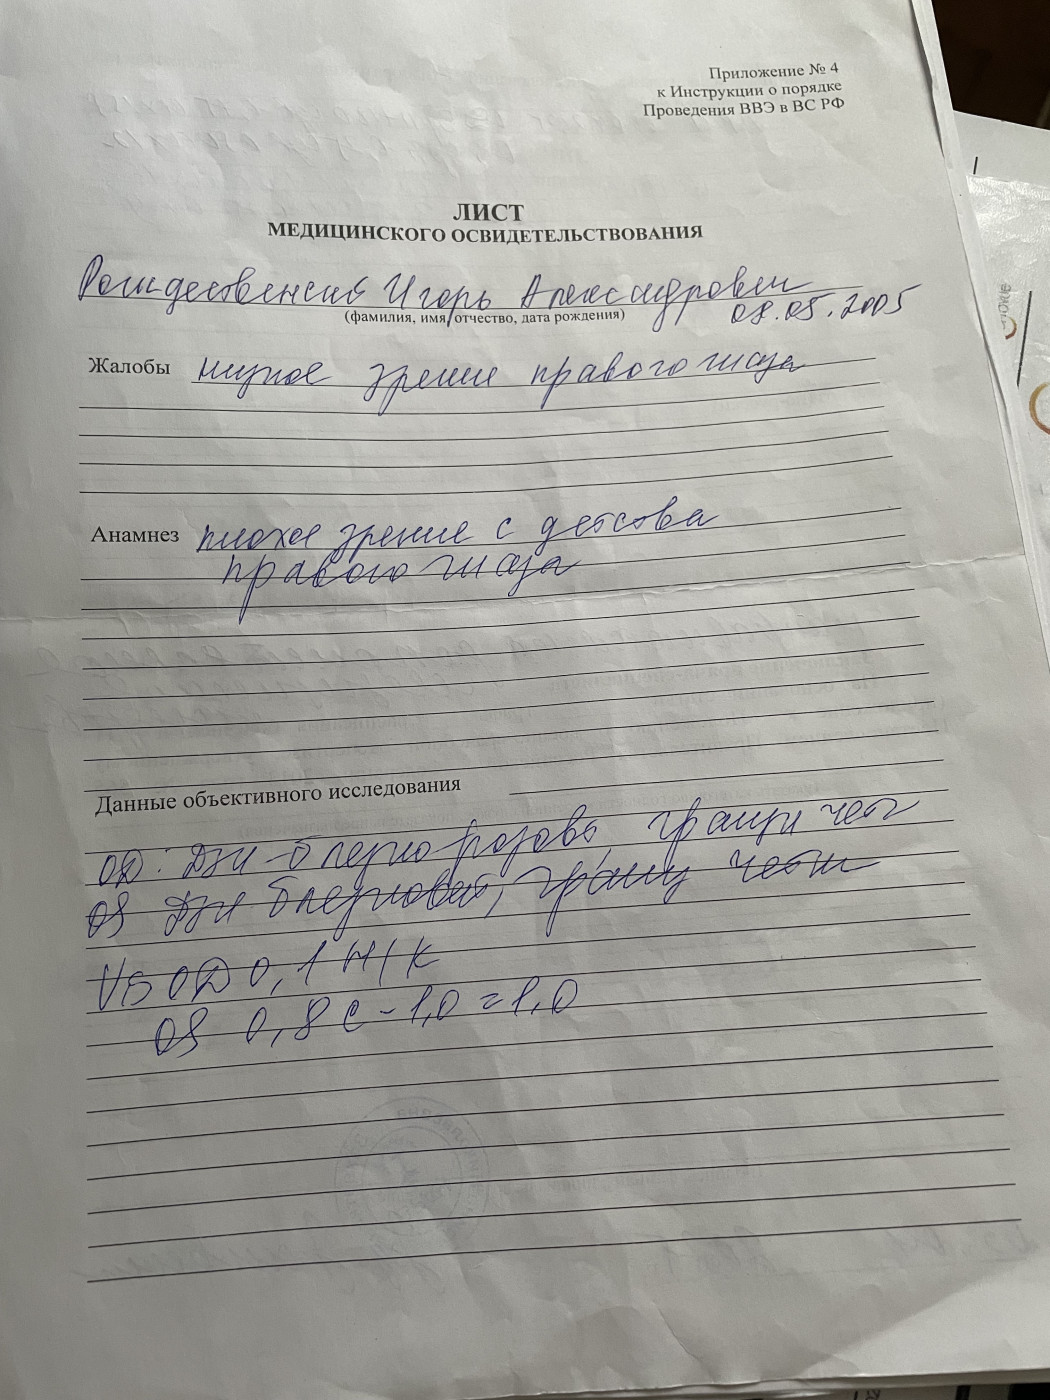 Приложение № 4
к Инструкции о порядке
Проведения ВВЭ в ВС РФ
ЛИСТ
МЕДИЦИНСКОГО ОСВИДЕТЕЛЬСТВОВАНИЯ
Рождественский Игорь Александрович
08.05.2005
(фамилия, имя, отчество, дата рождения)
Жалобы низкое зрение правого глаза
Анамнез плохое зрение с детсва
правого глаза
Данные объективного исследования
OD: ДЗН - бледно розовый, границы чет
OS ДЗН бледно розовый, границ четк
VIS OD 0,1 Н/К
OS 0,8 с - 1,0 = 1,0